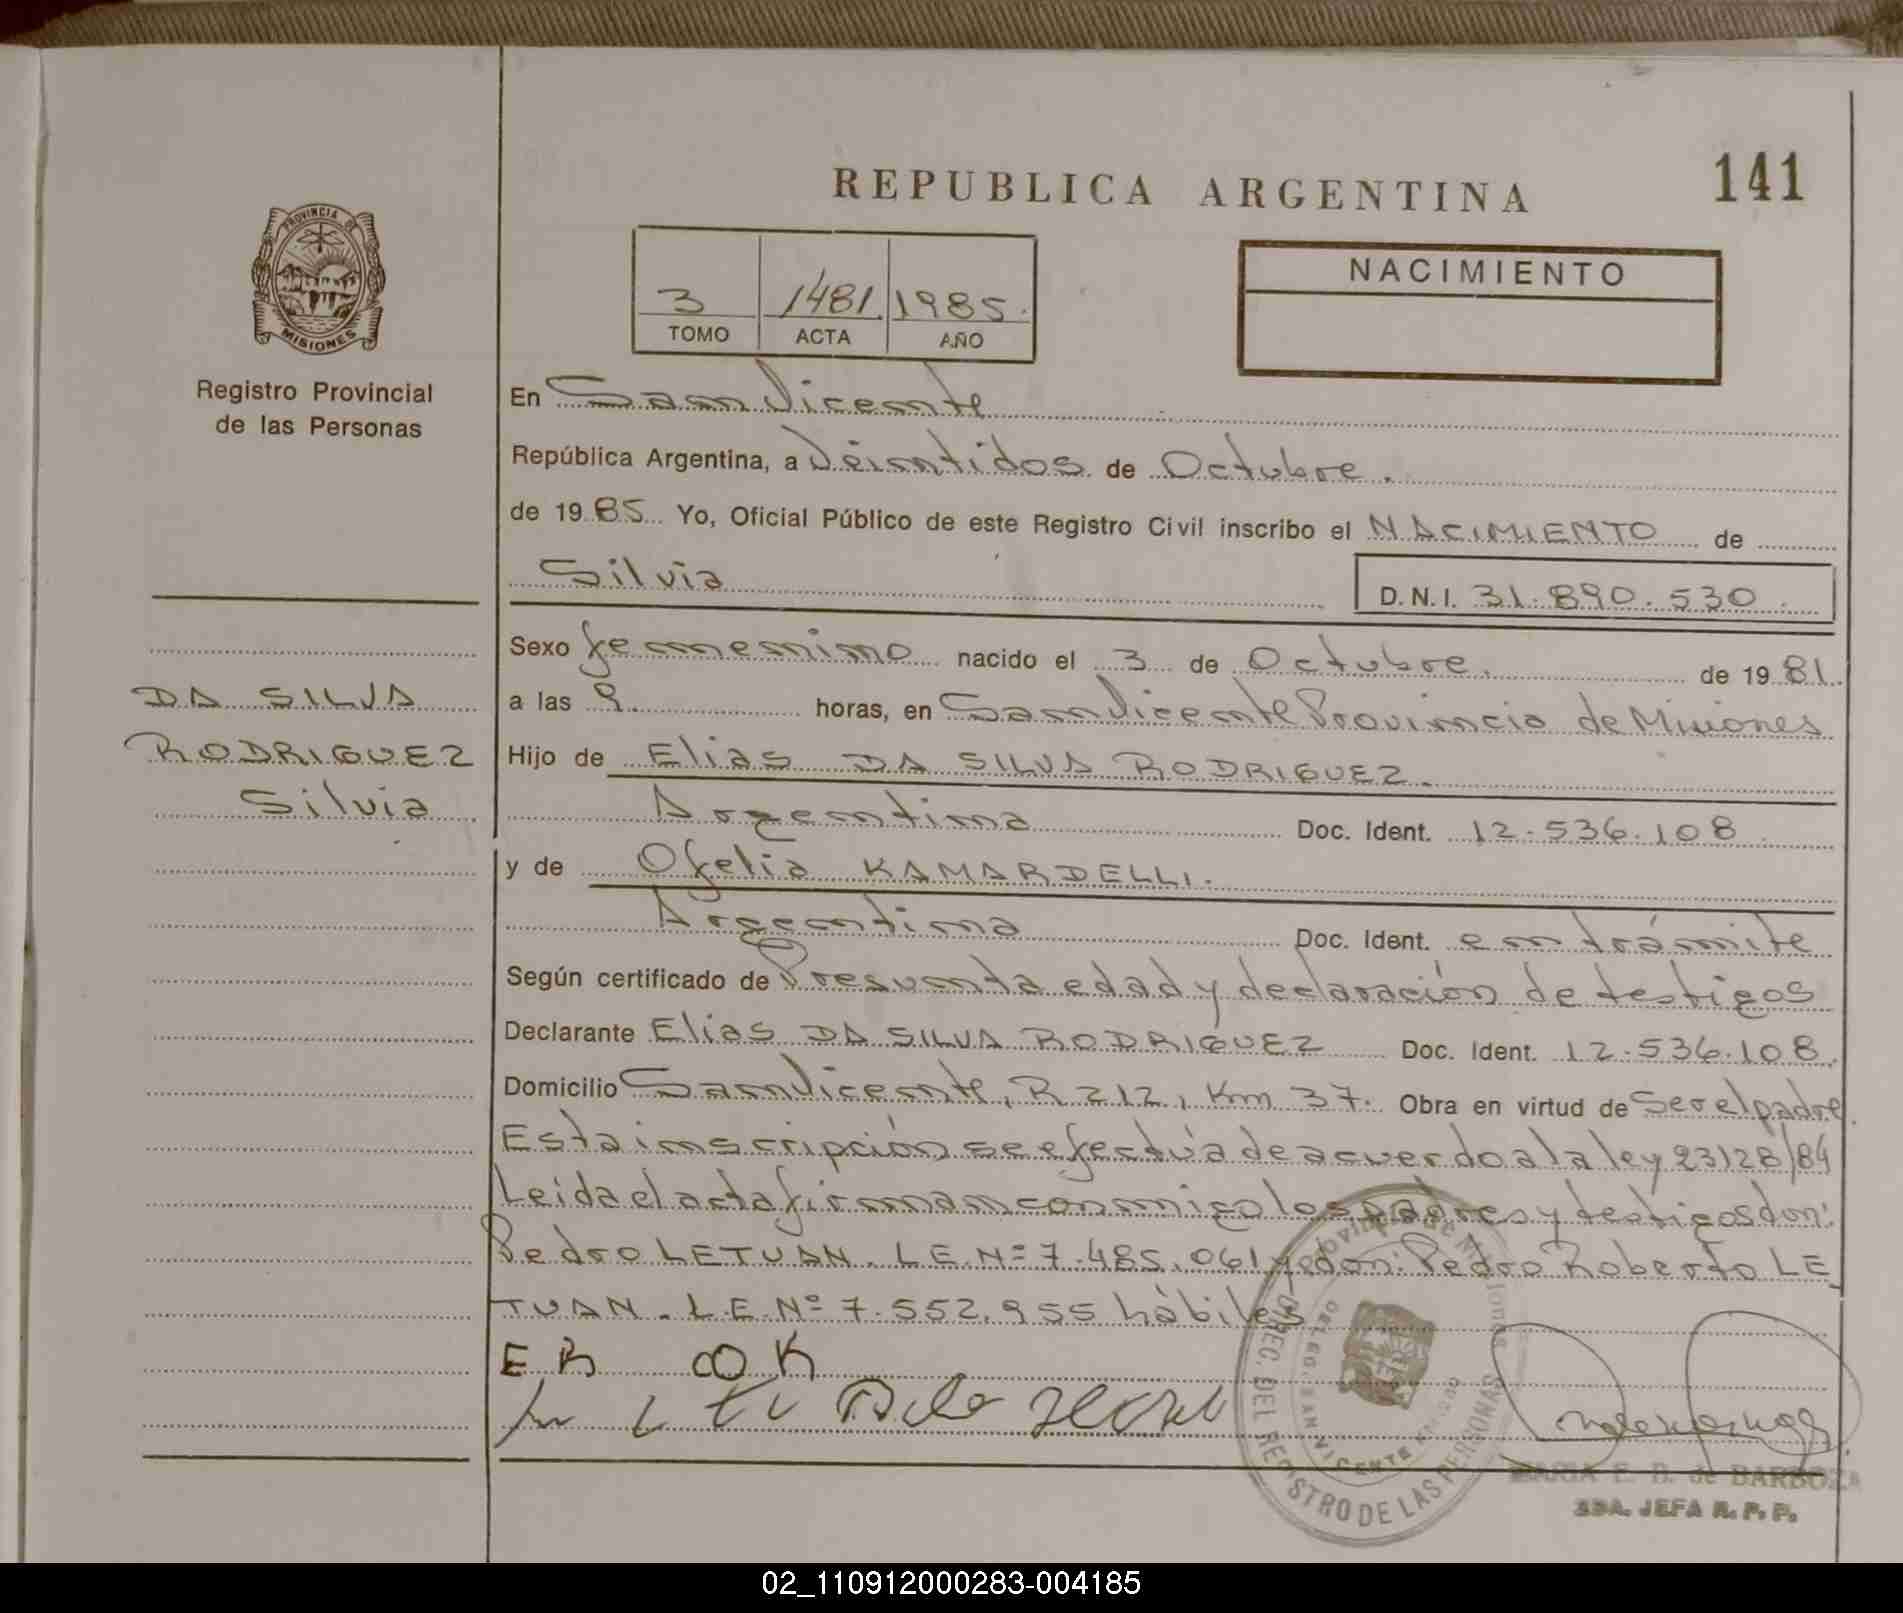 REPUBLICA ARGENTINA
141
PROVINCIA DE
MISIONES
Registro Provincial
de las Personas
3 1481. 1985.
TOMO ACTA AÑO
NACIMIENTO
En San Vicente
República Argentina, a Veintidos de Octubre.
de 1985 Yo, Oficial Público de este Registro Civil inscribo el NACIMIENTO de
Silvia
D.N.I. 31.890.530.
DA SILVA
RODRIGUEZ
Silvia
Sexo femenino nacido el 3 de Octubre. de 1981.
a las 9. horas, en San Vicente Provincia de Misiones
Hijo de Elias DA SILVA RODRIGUEZ.
Argentina Doc. Ident. 12.536.108
y de Ofelia KAMARDELLI.
Argentina Doc. Ident. en trámite
Según certificado de Presunta edad y declaración de testigos
Declarante Elias DA SILVA RODRIGUEZ Doc. Ident. 12.536.108.
Domicilio San Vicente, R 212, Km 37. Obra en virtud de Ser el padre.
Esta inscripción se efectúa de acuerdo a la ley 23128/84
Leida el acta firman conmigo los padres y testigos don:
Pedro LETUAN. L.E.Nº 7.485.061 y don: Pedro Roberto LE
TUAN. L.E.Nº 7.552.955 hábiles
E R OO K
DIREC. DEL REGISTRO DE LAS PERSONAS
DELEG. SAN VICENTE
MARIA E. B. de BARBOZA
JEFA R. P. P.
02_110912000283-004185